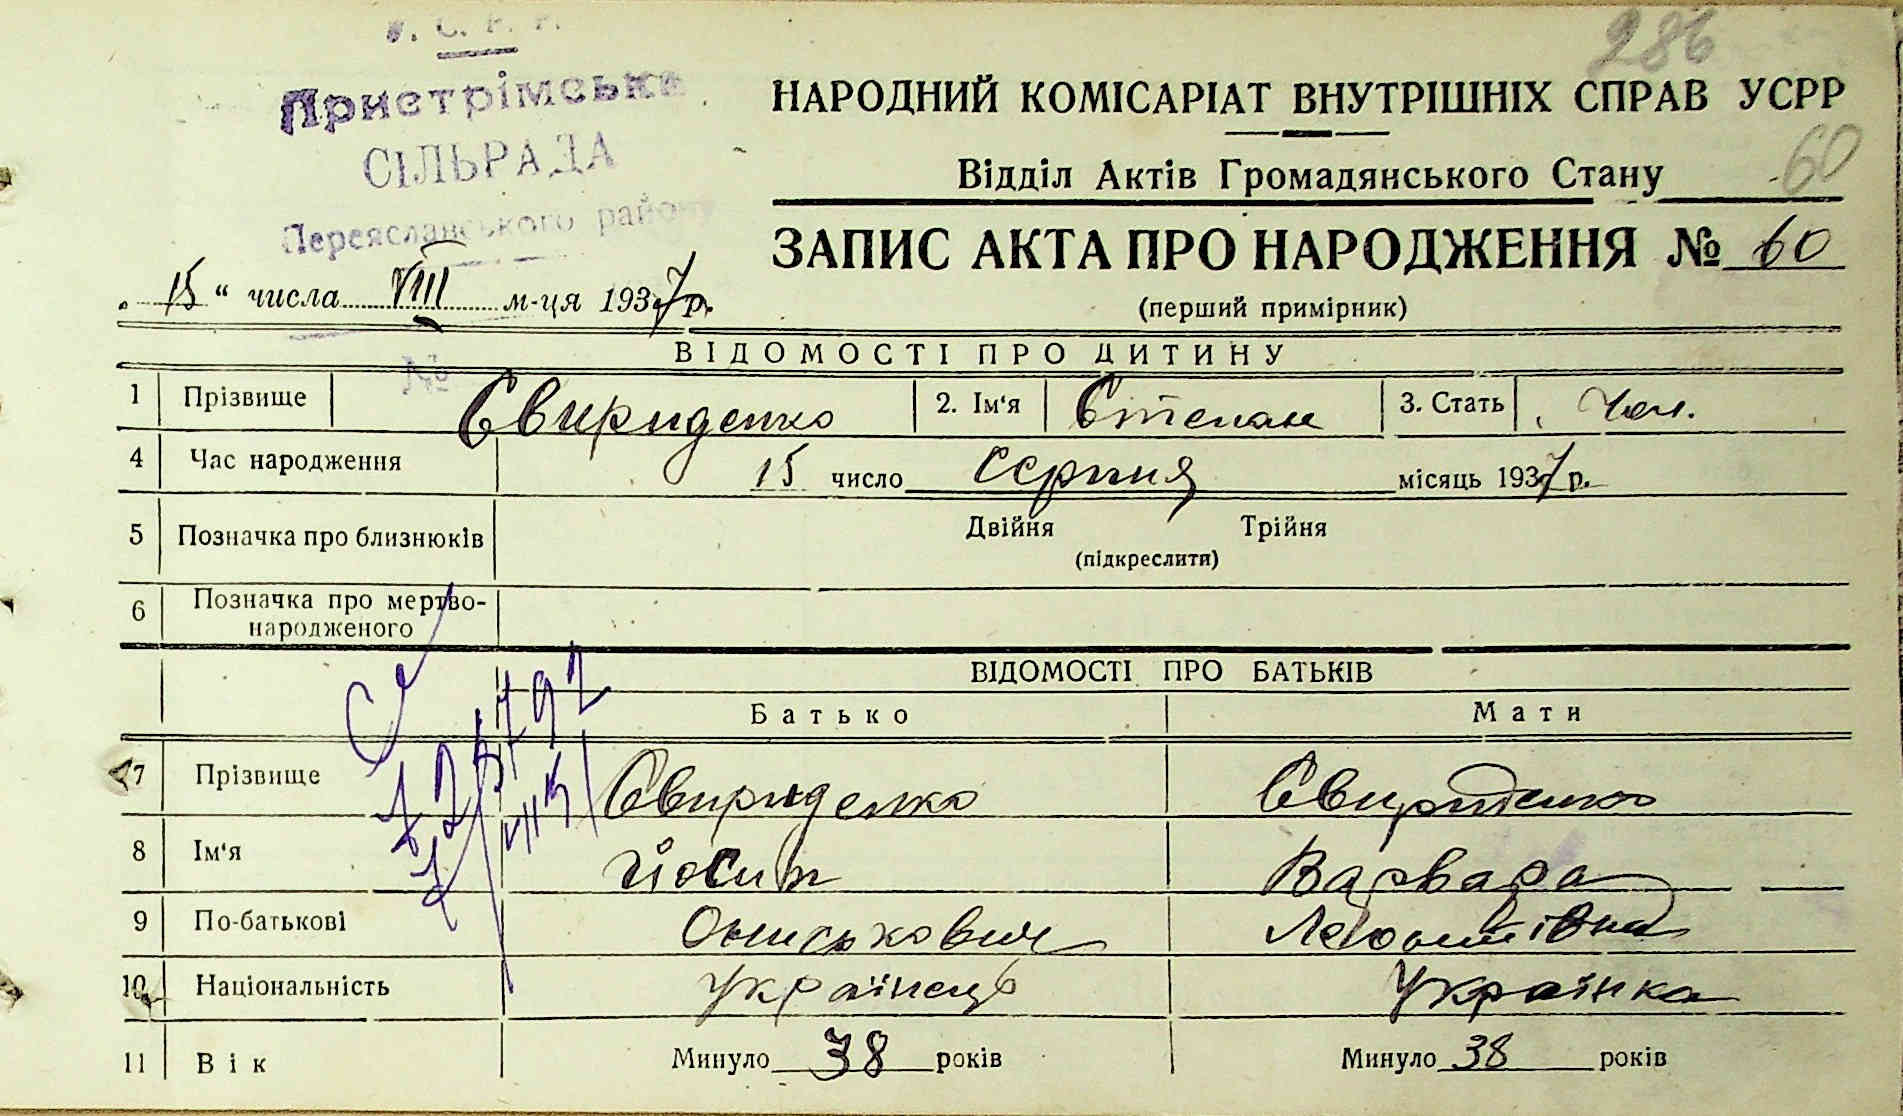 У. С. Р. Р.
286
Пристрімська
НАРОДНИЙ КОМІСАРІАТ ВНУТРІШНІХ СПРАВ УСРР
СІЛЬРАДА
60
Відділ Актів Громадянського Стану
Переяславського району
ЗАПИС АКТА ПРО НАРОДЖЕННЯ № 60
„ 15 “ числа VIII м-ця 1937 р.
(перший примірник)
ВІДОМОСТІ ПРО ДИТИНУ
№
1 Прізвище Свириденко 2. Ім‘я Степан 3. Стать Чол.
4 Час народження 15 число Серпня місяць 1937 р.
5 Позначка про близнюків Двійня Трійня
(підкреслити)
6 Позначка про мертво-
народженого
ВІДОМОСТІ ПРО БАТЬКІВ
Батько Мати
7 Прізвище Свириденко Свириденко
8 Ім‘я Йосип Варвара
9 По-батькові Ониськович
10 Національність Українець Українка
11 Вік Минуло 38 років Минуло 38 років